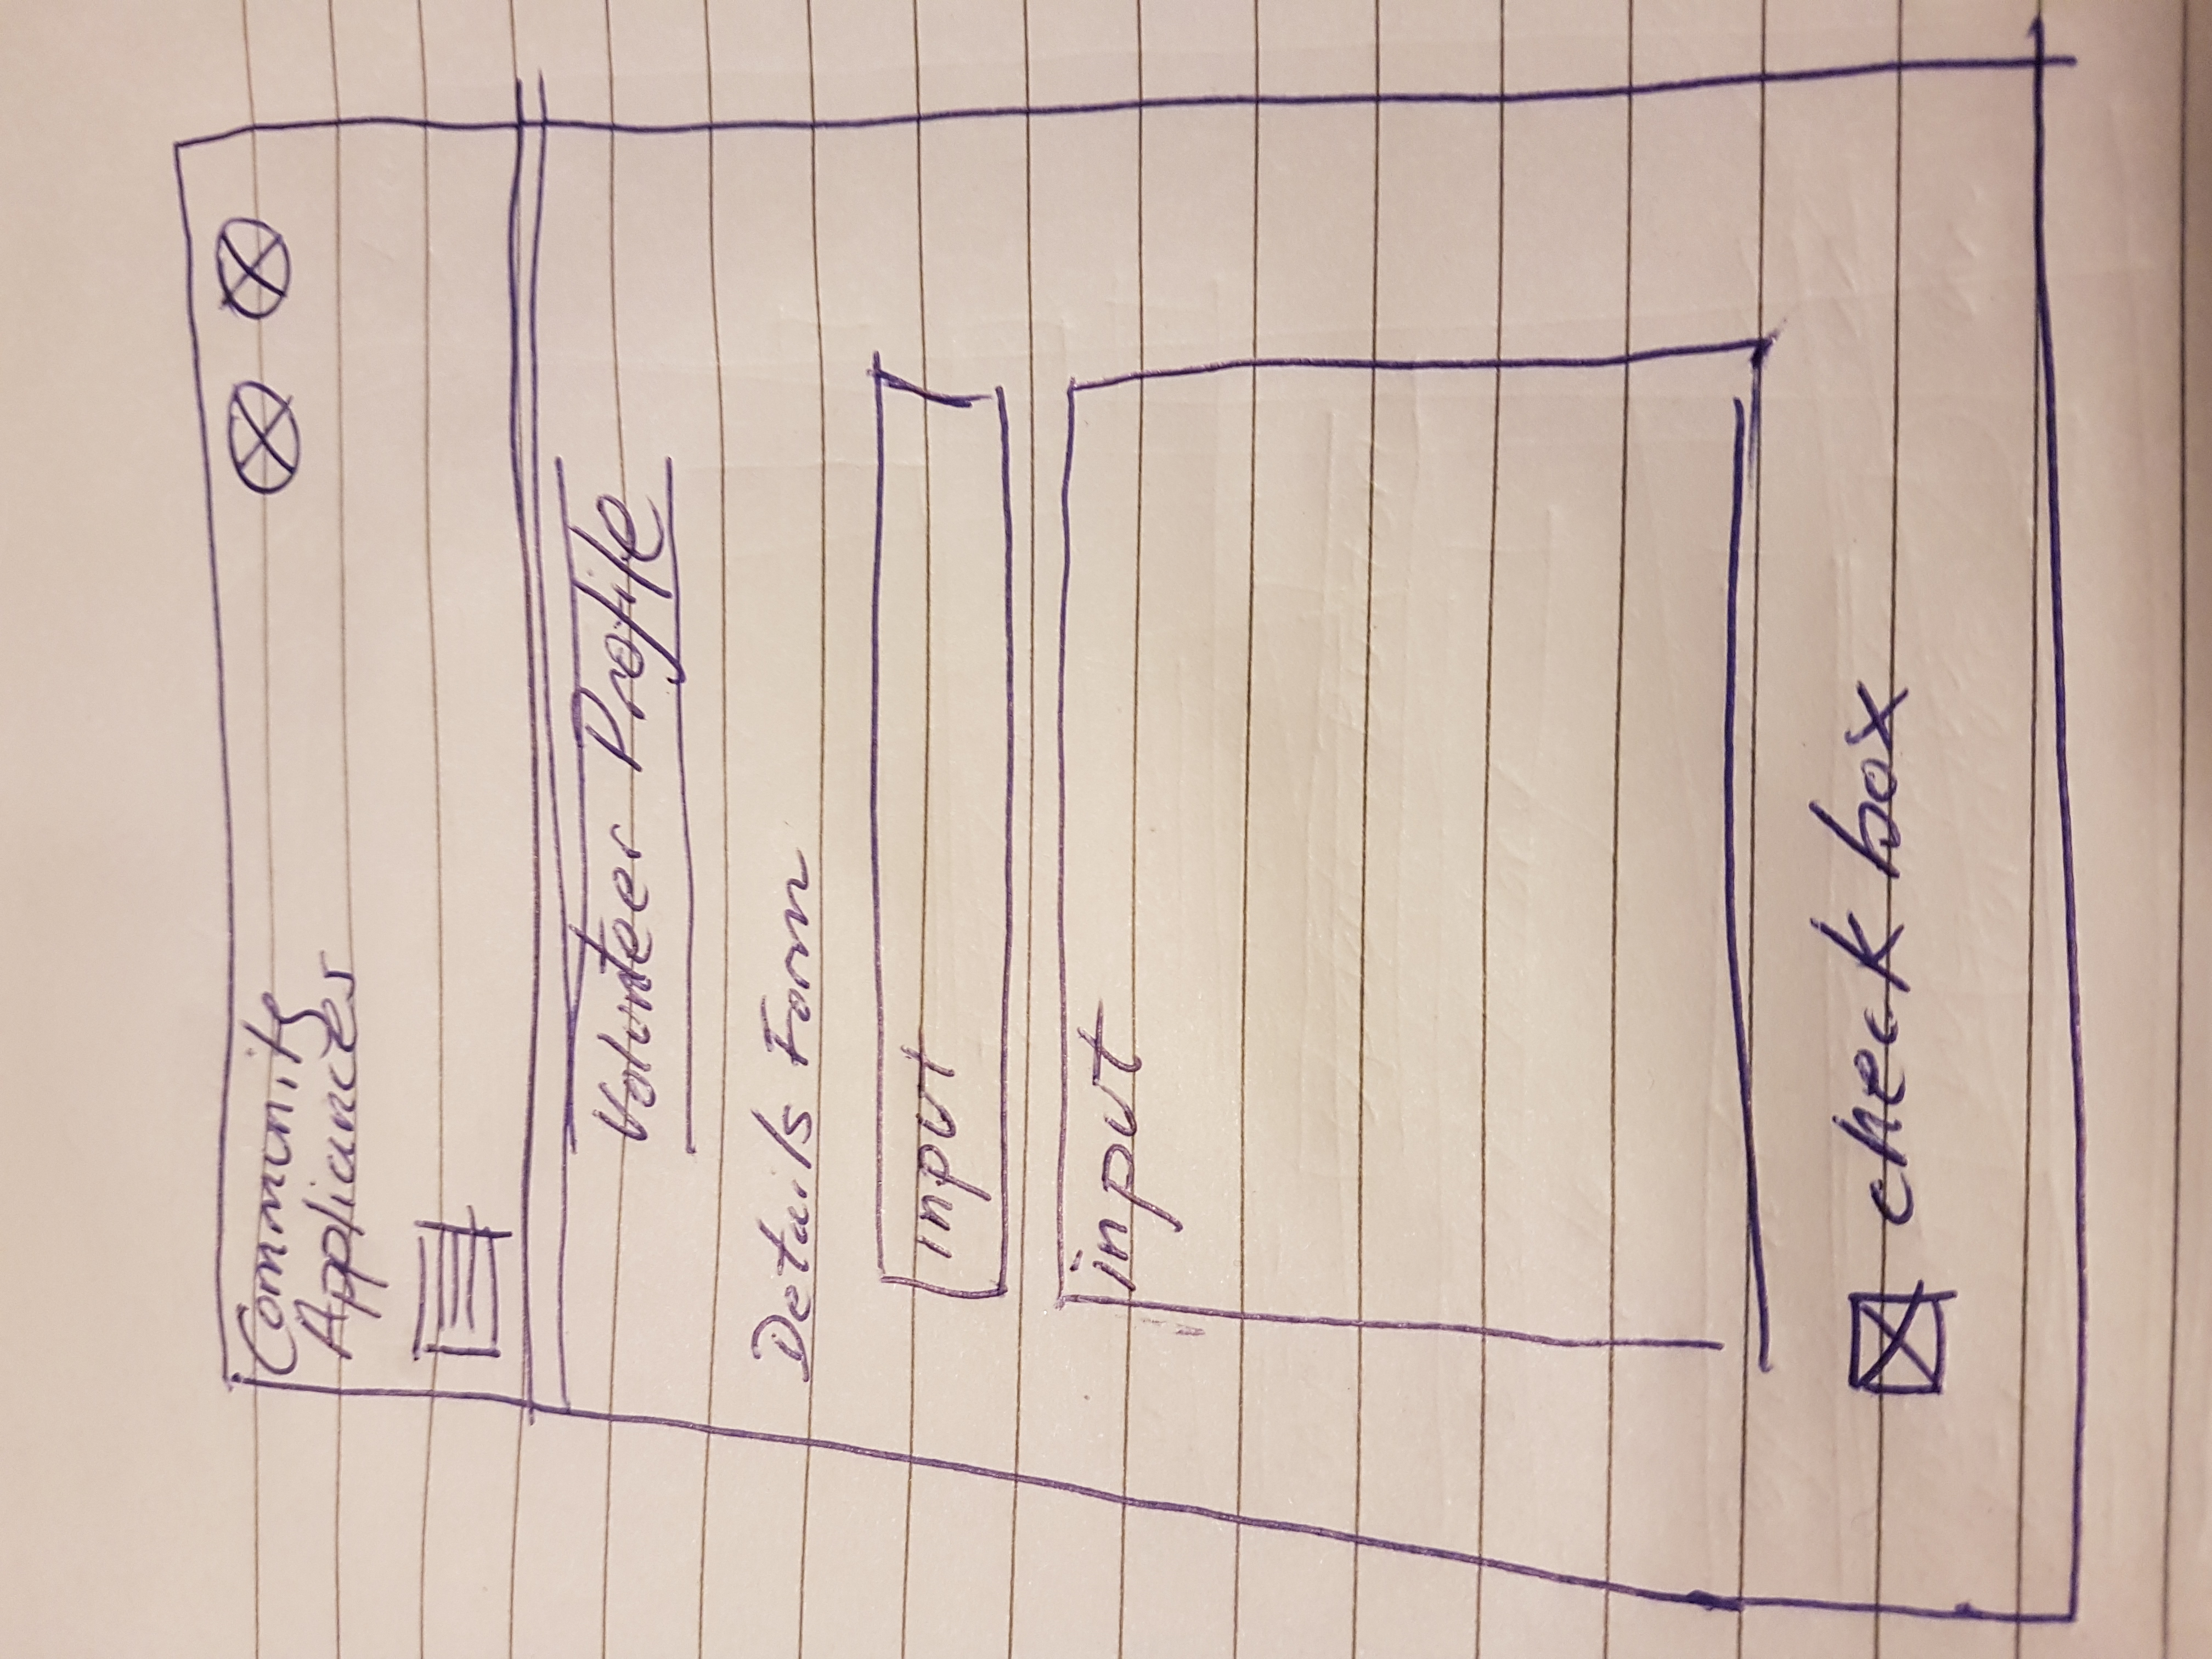 Community
Appliances
Volunteer Profile
Details Form
input
input
check box